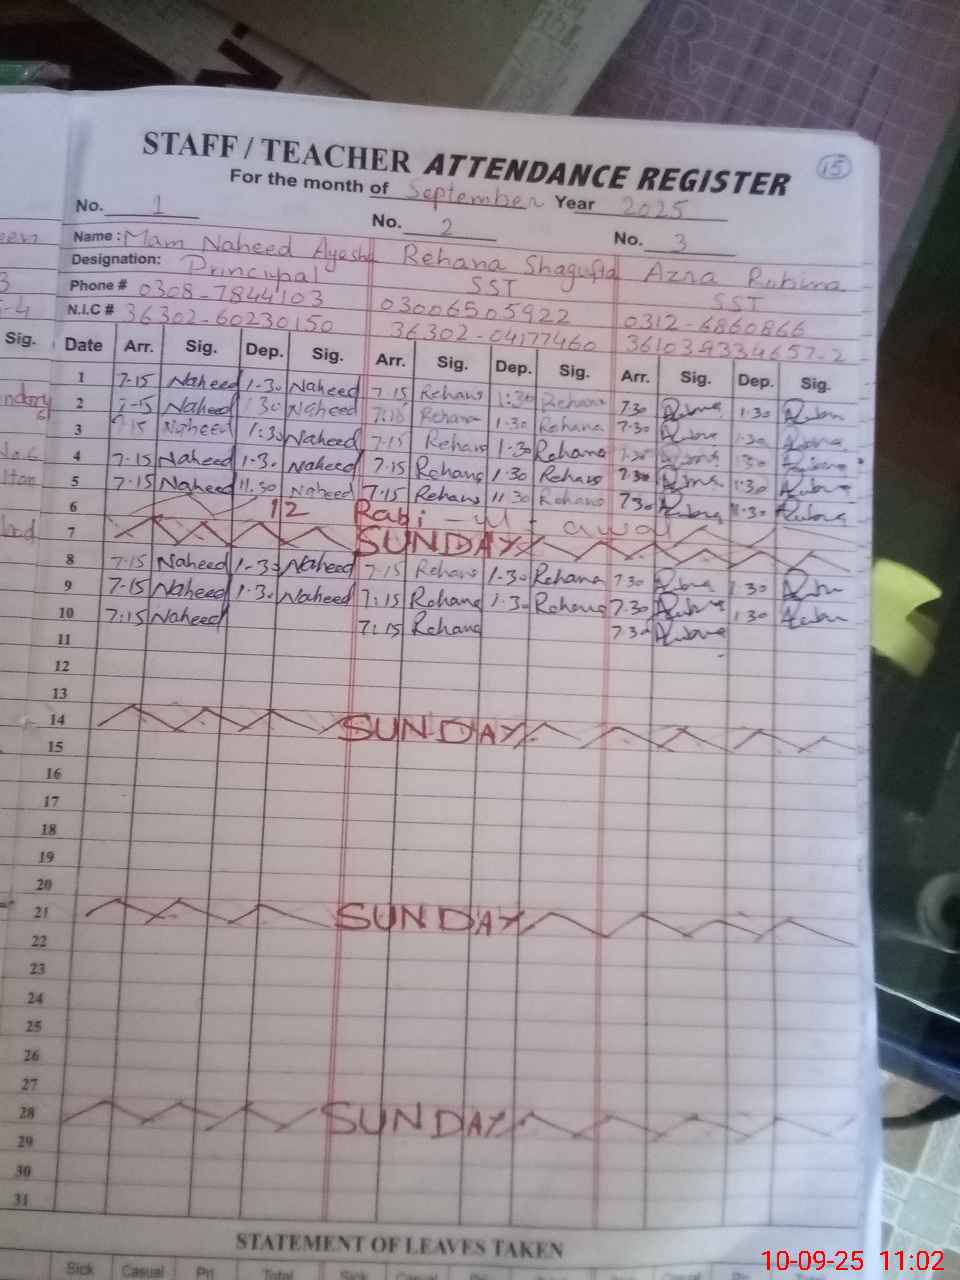 STAFF / TEACHER ATTENDANCE REGISTER
15
For the month of September Year 2025
No. 1 No. 2 No. 3
Name : Mam Naheed Ayesha Rehana Shagufta Azra Rubina
Designation: Principal SST SST
Phone # 0308-7844103 03006505922 0312-6860866
N.I.C # 36302-60230150 36302-04177460 361039334657-2
Sig. Date Arr. Sig. Dep. Sig. Arr. Sig. Dep. Sig. Arr. Sig. Dep. Sig.
1 7-15 Naheed 1-30 Naheed 7.15 Rehana 1:30 Rehana 7.30 1.30
2 7-15 Naheed 1.30 Naheed 7:15 Rehana 1.30 Rehana 7.30
3 7.15 Naheed 1:30 Naheed 7-15 Rehana 1-30 Rehana
4 7.15 Naheed 1.30 Naheed 7.15 Rehana 1.30 Rehana 7.30 1.30
5 7.15 Naheed 11.30 Naheed 7.15 Rehana 11.30 Rehana 7.30 11.30
6 12 Rabi-ul-awal
7 SUNDAY
8 7.15 Naheed 1-30 Naheed 7-15 Rehana 1-30 Rehana 7.30 1.30
9 7-15 Naheed 1.30 Naheed 7:15 Rehana 1-30 Rehana 7.30 1.30
10 7:15 Naheed 7:15 Rehana 7.30
11
12
13
14 SUNDAY
15
16
17
18
19
20
21 SUNDAY
22
23
24
25
26
27
28 SUNDAY
29
30
31
STATEMENT OF LEAVES TAKEN
Sick Casual Pri Total Sick Casual
10-09-25 11:02